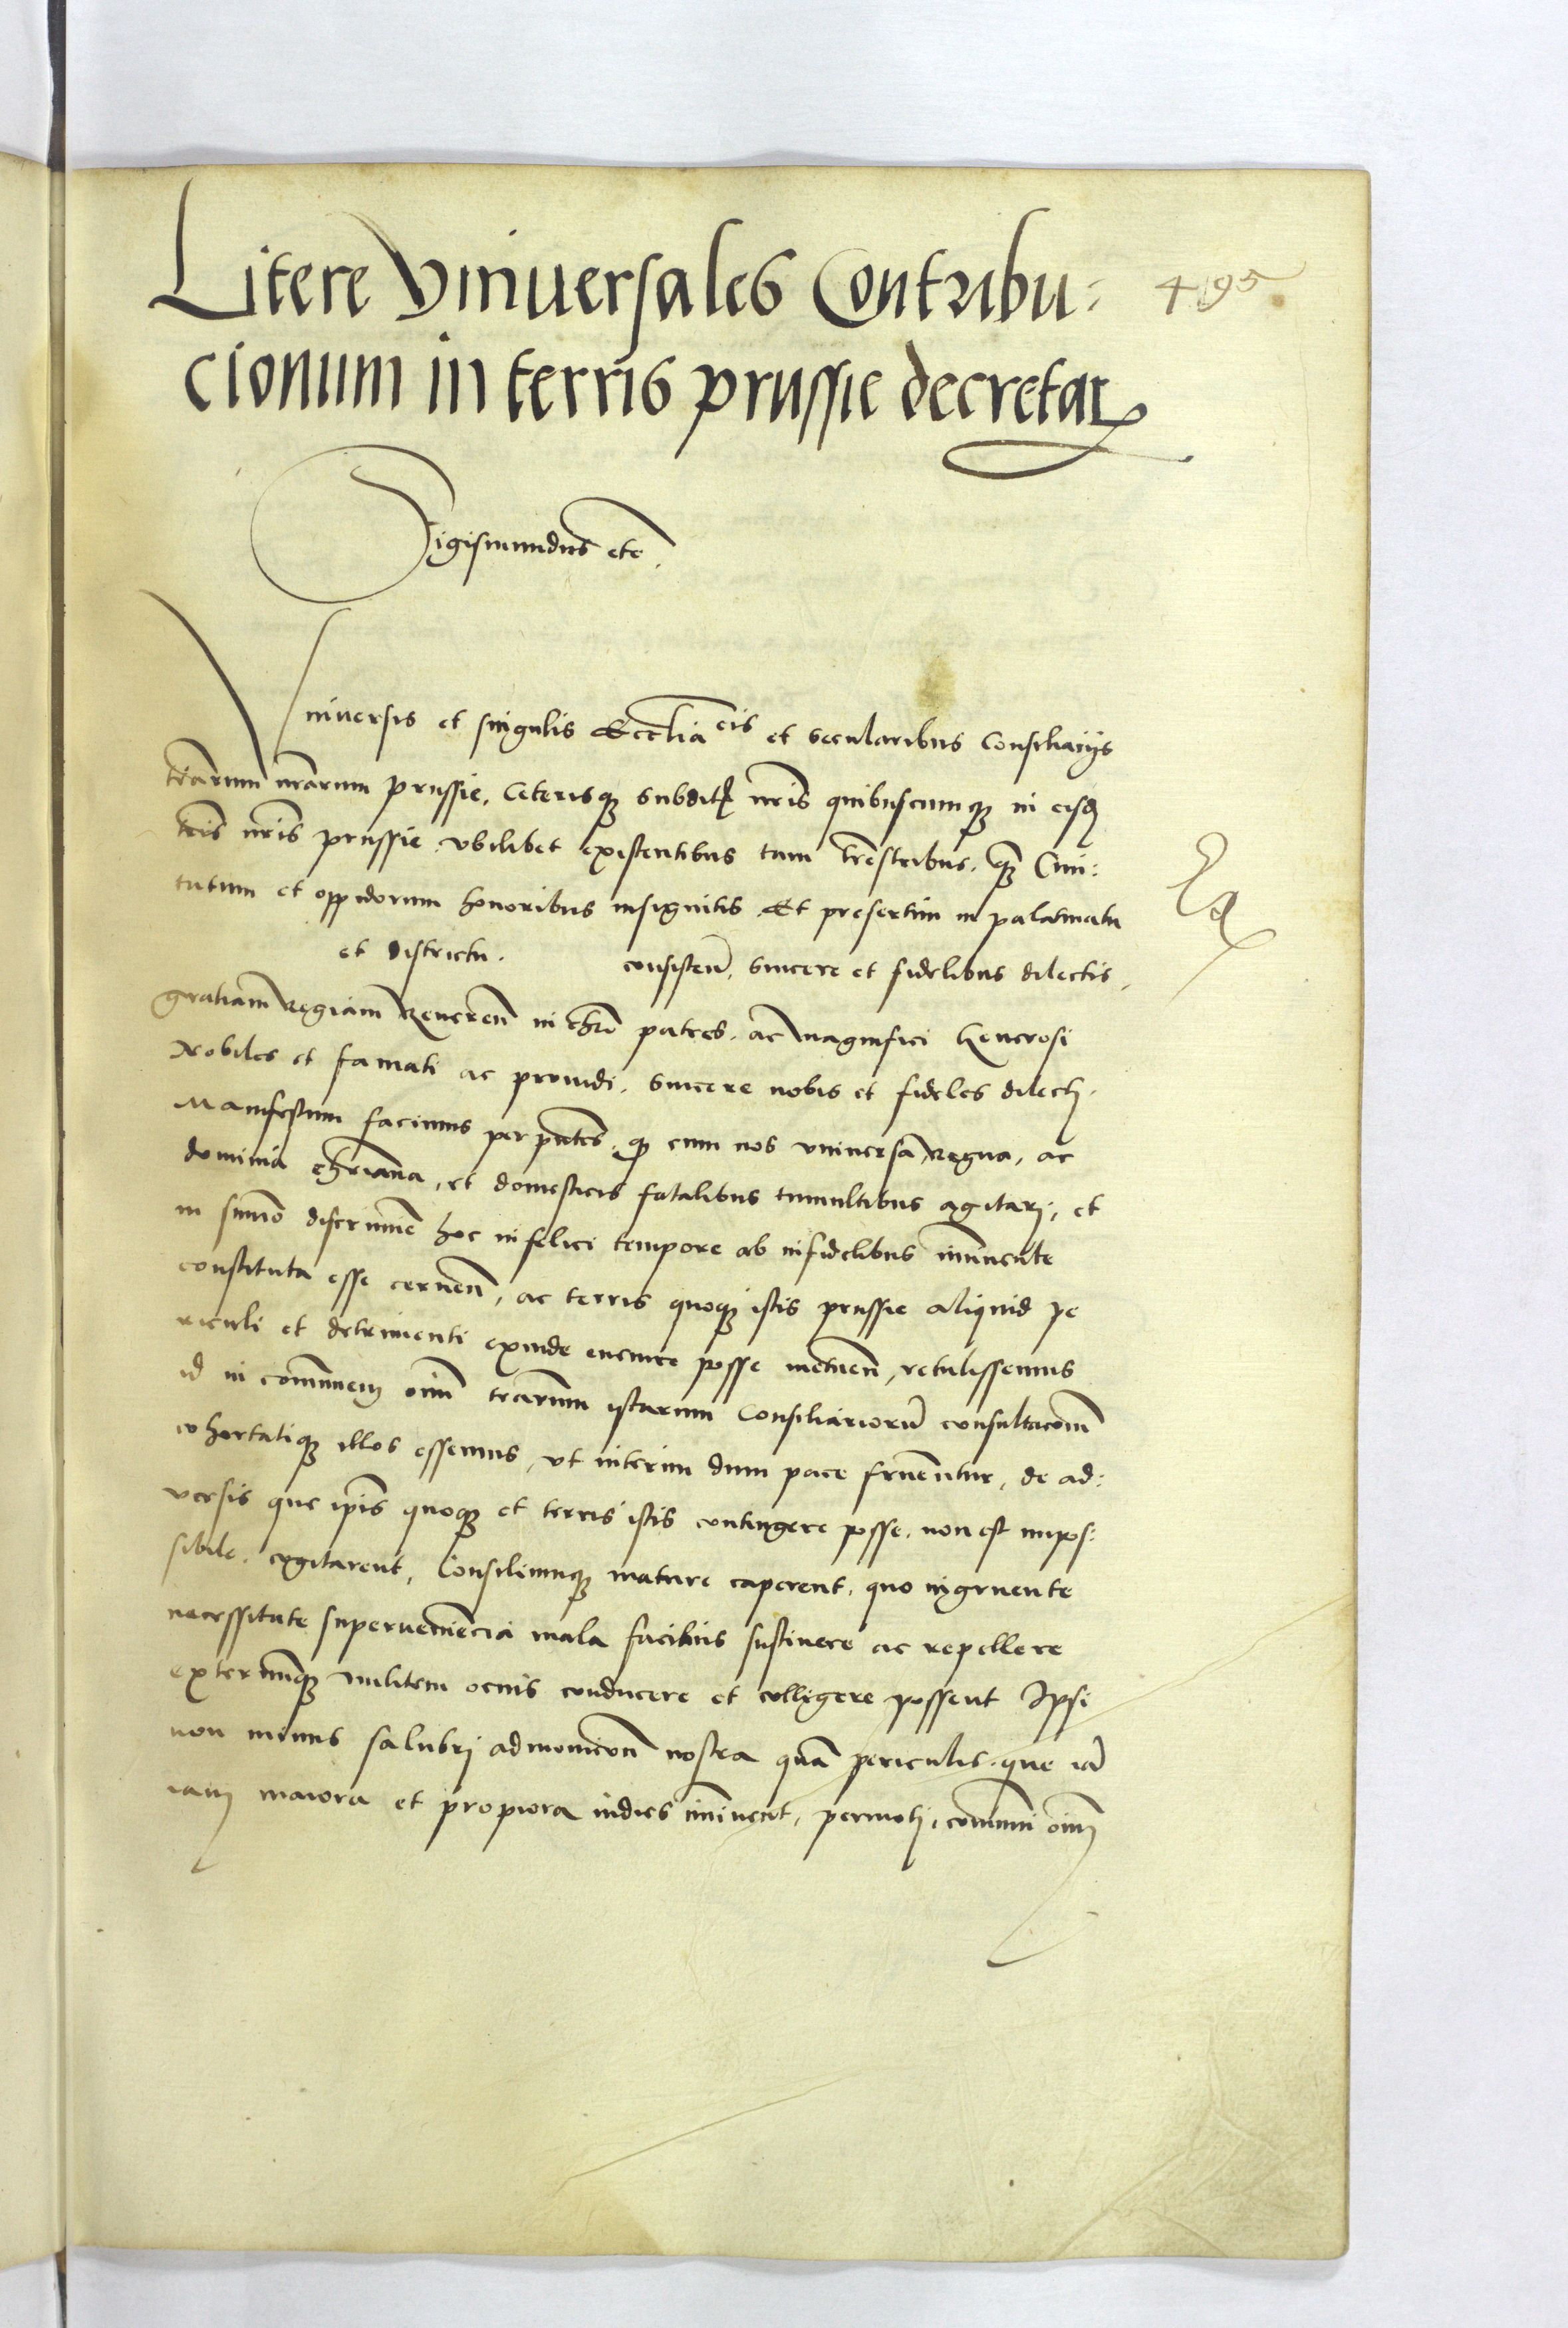 Litere Vniuersales Contribu: 495
cionum in terris prussie decretaꝝ
Sigismundus etc.
Vniuersis et singulis Ecclīacis et secularibus Consiliarijs
trārum nrārum prussie, Ceterisqꝫ subditꝭ nrīs quibuscumqꝫ in eisdꝫ
trīs nrīs prussie vbilibet existentibus tam trēstribus, qꝫ Ciui:
tatum et oppidorum honoribus insignitis. Et presertim in palatinatu
et districtu. consisteñ, sincere et fidelibus dilectis,
gratiam Regiam Reuereñ in chrō patres. ac Magnifici Generosi
Nobiles et famati ac prouidi. sincere nobis et fideles dilecti.
Manifestum facimus per pntēs. qꝫ cum nos vniuersa Regna, ac
dominia chrīana, et domesticis fatalibus tumultibus agitari, et
in sūmo discrimīe hoc infelici tempore ab infidelibus īminente
constituta esse cerneñ, ac terris quoqꝫ istis prussie aliquid pe
riculi et detrimenti exinde euenire posse metueñ, retulissemus
id in cōmunem oīm trārum istarum Consiliariorū consultacōm
cohortatiqꝫ illos essemus, vt interim dum pace fruērentur, de ad:
uersis que ipīs quoqꝫ et terris istis contingere posse. non est impos:
sibile. cogitarent, Consiliumqꝫ mature caperent, quo ingruente
necessitate superueniēcia mala facilius sustinere ac repellere
externumqꝫ militem ocius conducere et colligere possent Ipsi
non minus salubri admonicoñ nostra quā periculis. que iā
iam maiora et propiora indies īminent, permoti, cōmuni oīm